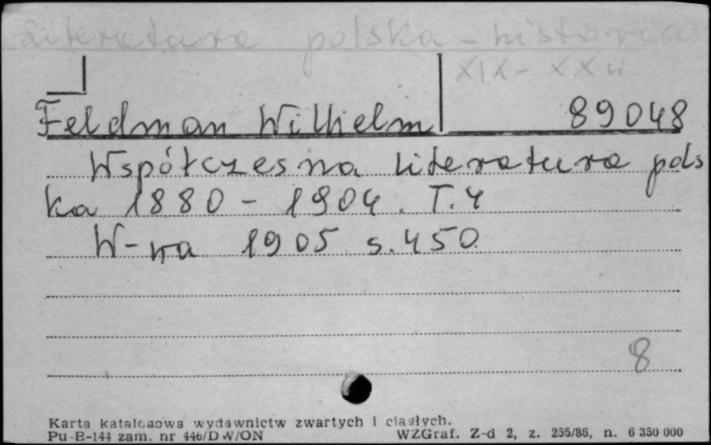 Literatura polska - historia
XIX - XX w
Feldman Wilhelm 89048
Współczesna literatura pols
ka 1880 - 1904. T. 4
W-wa 1905 s. 450
8
Karta katalogowa wydawnictw zwartych i ciągłych.
Pu-B-144 zam. nr 446/DW/ON WZGraf. Z-d 2, z. 255/86, n. 6 350 000